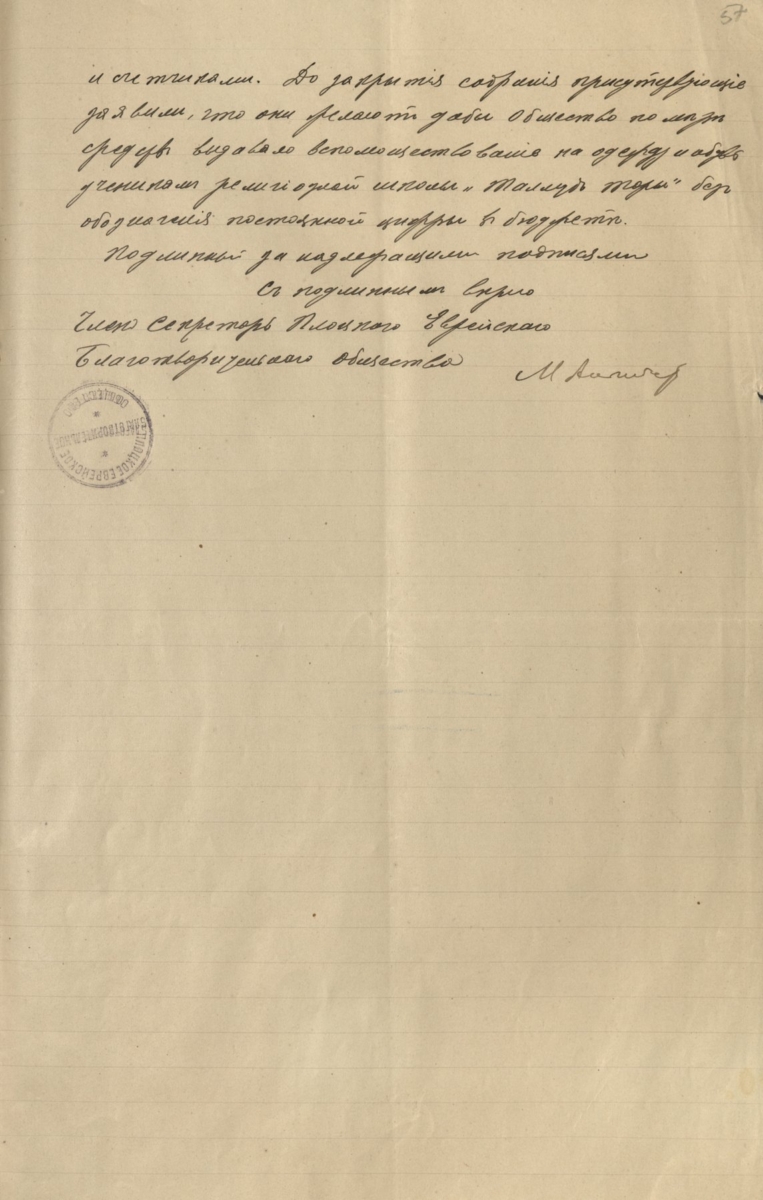 57
и счетчиками. До закрытія собранія присутствующіе
заявили, что они желаютъ дабы Общество по мѣрѣ
средствъ видавало вспомоществованіе на одежду и обувь
ученикамъ религіозной школы „Талмудъ Торы" безъ
обозначенія постоянной цифры въ бюджетѣ.
Подлинный за надлежащими подписями
Съ подлиннымъ вѣрно
Членъ Секретарь Плоцкого Еврейского
Благотворительного общества
М
ПЛОЦКОЕ ЕВРЕЙСКОЕ
БЛАГОТВОРИТЕЛЬНОЕ
ОБЩЕСТВО